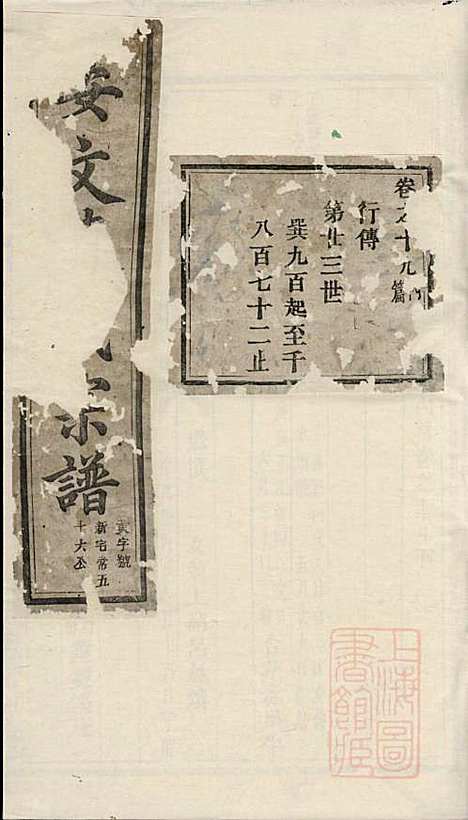 卷之十九內篇
行傳
第廿三世
巽九百起至千
八百七十二止
安文
宗譜
字號
新宅常五
十六公
上海圖
書館藏